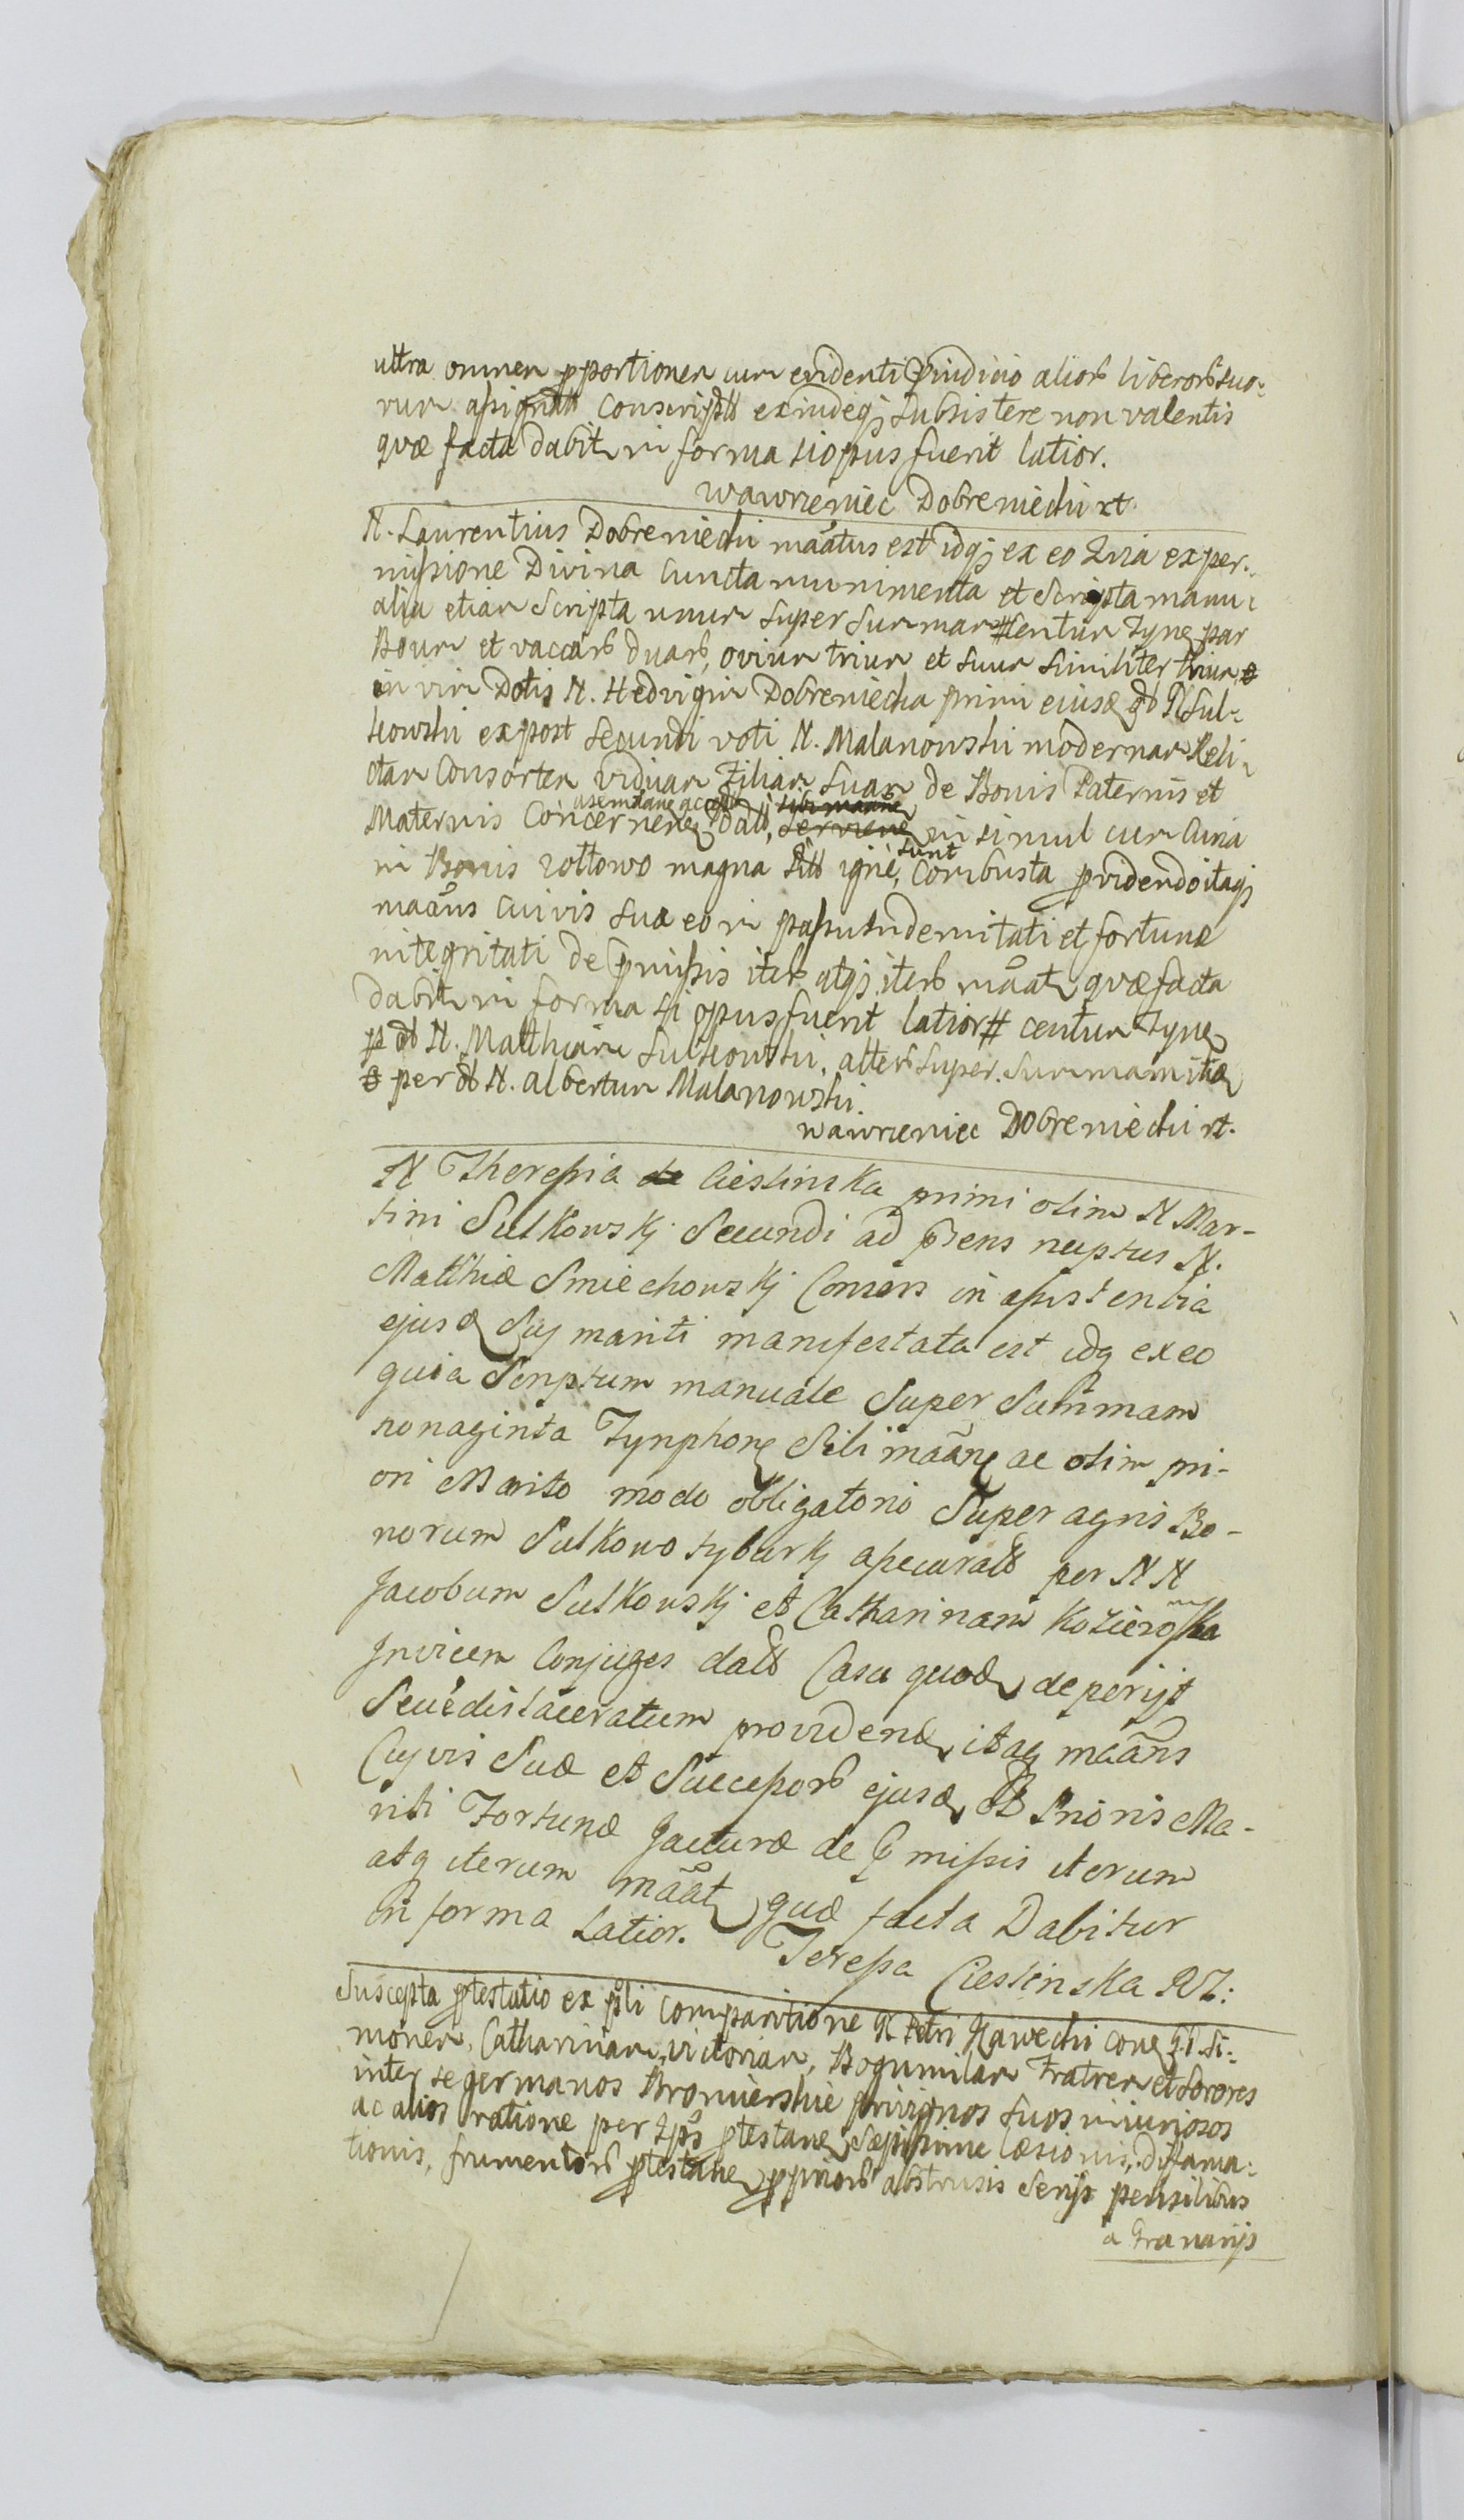 ultra omnem pportionem cum evidenti Pjudicio aliorb liberorb suo-
rum assignatt conscriptt exindeqj subsistere non valentis
quæ facta dabit in forma si opus fuerit latior.
Wawrzeniec Dobreniecki rt
N. Laurentius Dobreniecki maatus est idqj ex eo Quia ex per-
missione Divina Cuncta munimenta et Scripta manu
alia etiam Scripta unum super summam # Centum Tyne par
Boum et vaccarb duarb, ovium trium et suum similiter trium
in vim Dotis N. Hedvigim Dobreniecka primi eiusd N Sul-
kowski ex post secundi voti N. Malanowski modernam Reli-
ctam Consortem viduam Filiam Suam de Bonis Paternis et
Maternis Concernene datt, in simul cum Curia
in Bonis rottowo magna igne, sunt Combusta pvidendo itaqj
maans Cuivis suæ eo in passu Indemnitati et fortunæ
integritati de Pmissis iterb atqj iterb maat quæ facta
dabit in forma si opus fuerit latior # centum Tyne
p N. Matthiam Sulkowski, alterb super summam
per N. Albertum Malanowski.
Wawrzeniec Dobreniecki rt.
N Theressia de Ciestinska primi olim N Mar-
tini Sulkowskj Secundi ad Prens nuptus N.
Matthiæ Smiechowskj Consors in assistentia
ejusd Suj mariti manifestata est idq ex eo
quia Scriptum manuale Super Summam
nonaginta Tynphone Sibi maane ac olim pri-
ori Marito modo obligatorio Super agris Bo-
norum Sulkowo tyburkj assecuratt per N N
Jacobum Sulkowskj et Catharinam Kozieroska
Invicem Conjuges datt Casu quod deperijt
Seu è dislaceratum providend itaq maans
Cujvis Suæ et Successorb ejusd Prioris Ma-
riti Fortunæ Jacturæ de Pmissis iterum
atq iterum maat quæ facta Dabitur
in forma Latior. Teressa Ciestinska RZ:
Suscepta ptestatio ex pli comparitione N Petri Nawecki cone Si-
monem, Catharinam, Victoriam, Bogumilam Fratrem et Sorores
inter se germanos Bromierskie privignos suos iniuriosos
ac alios ratione per Ips ptestane sæpissime læsionis, Difama-
tionis, frumentorb ptestane ppriorb abstrusis Serijs pensilibus
a Granarijs